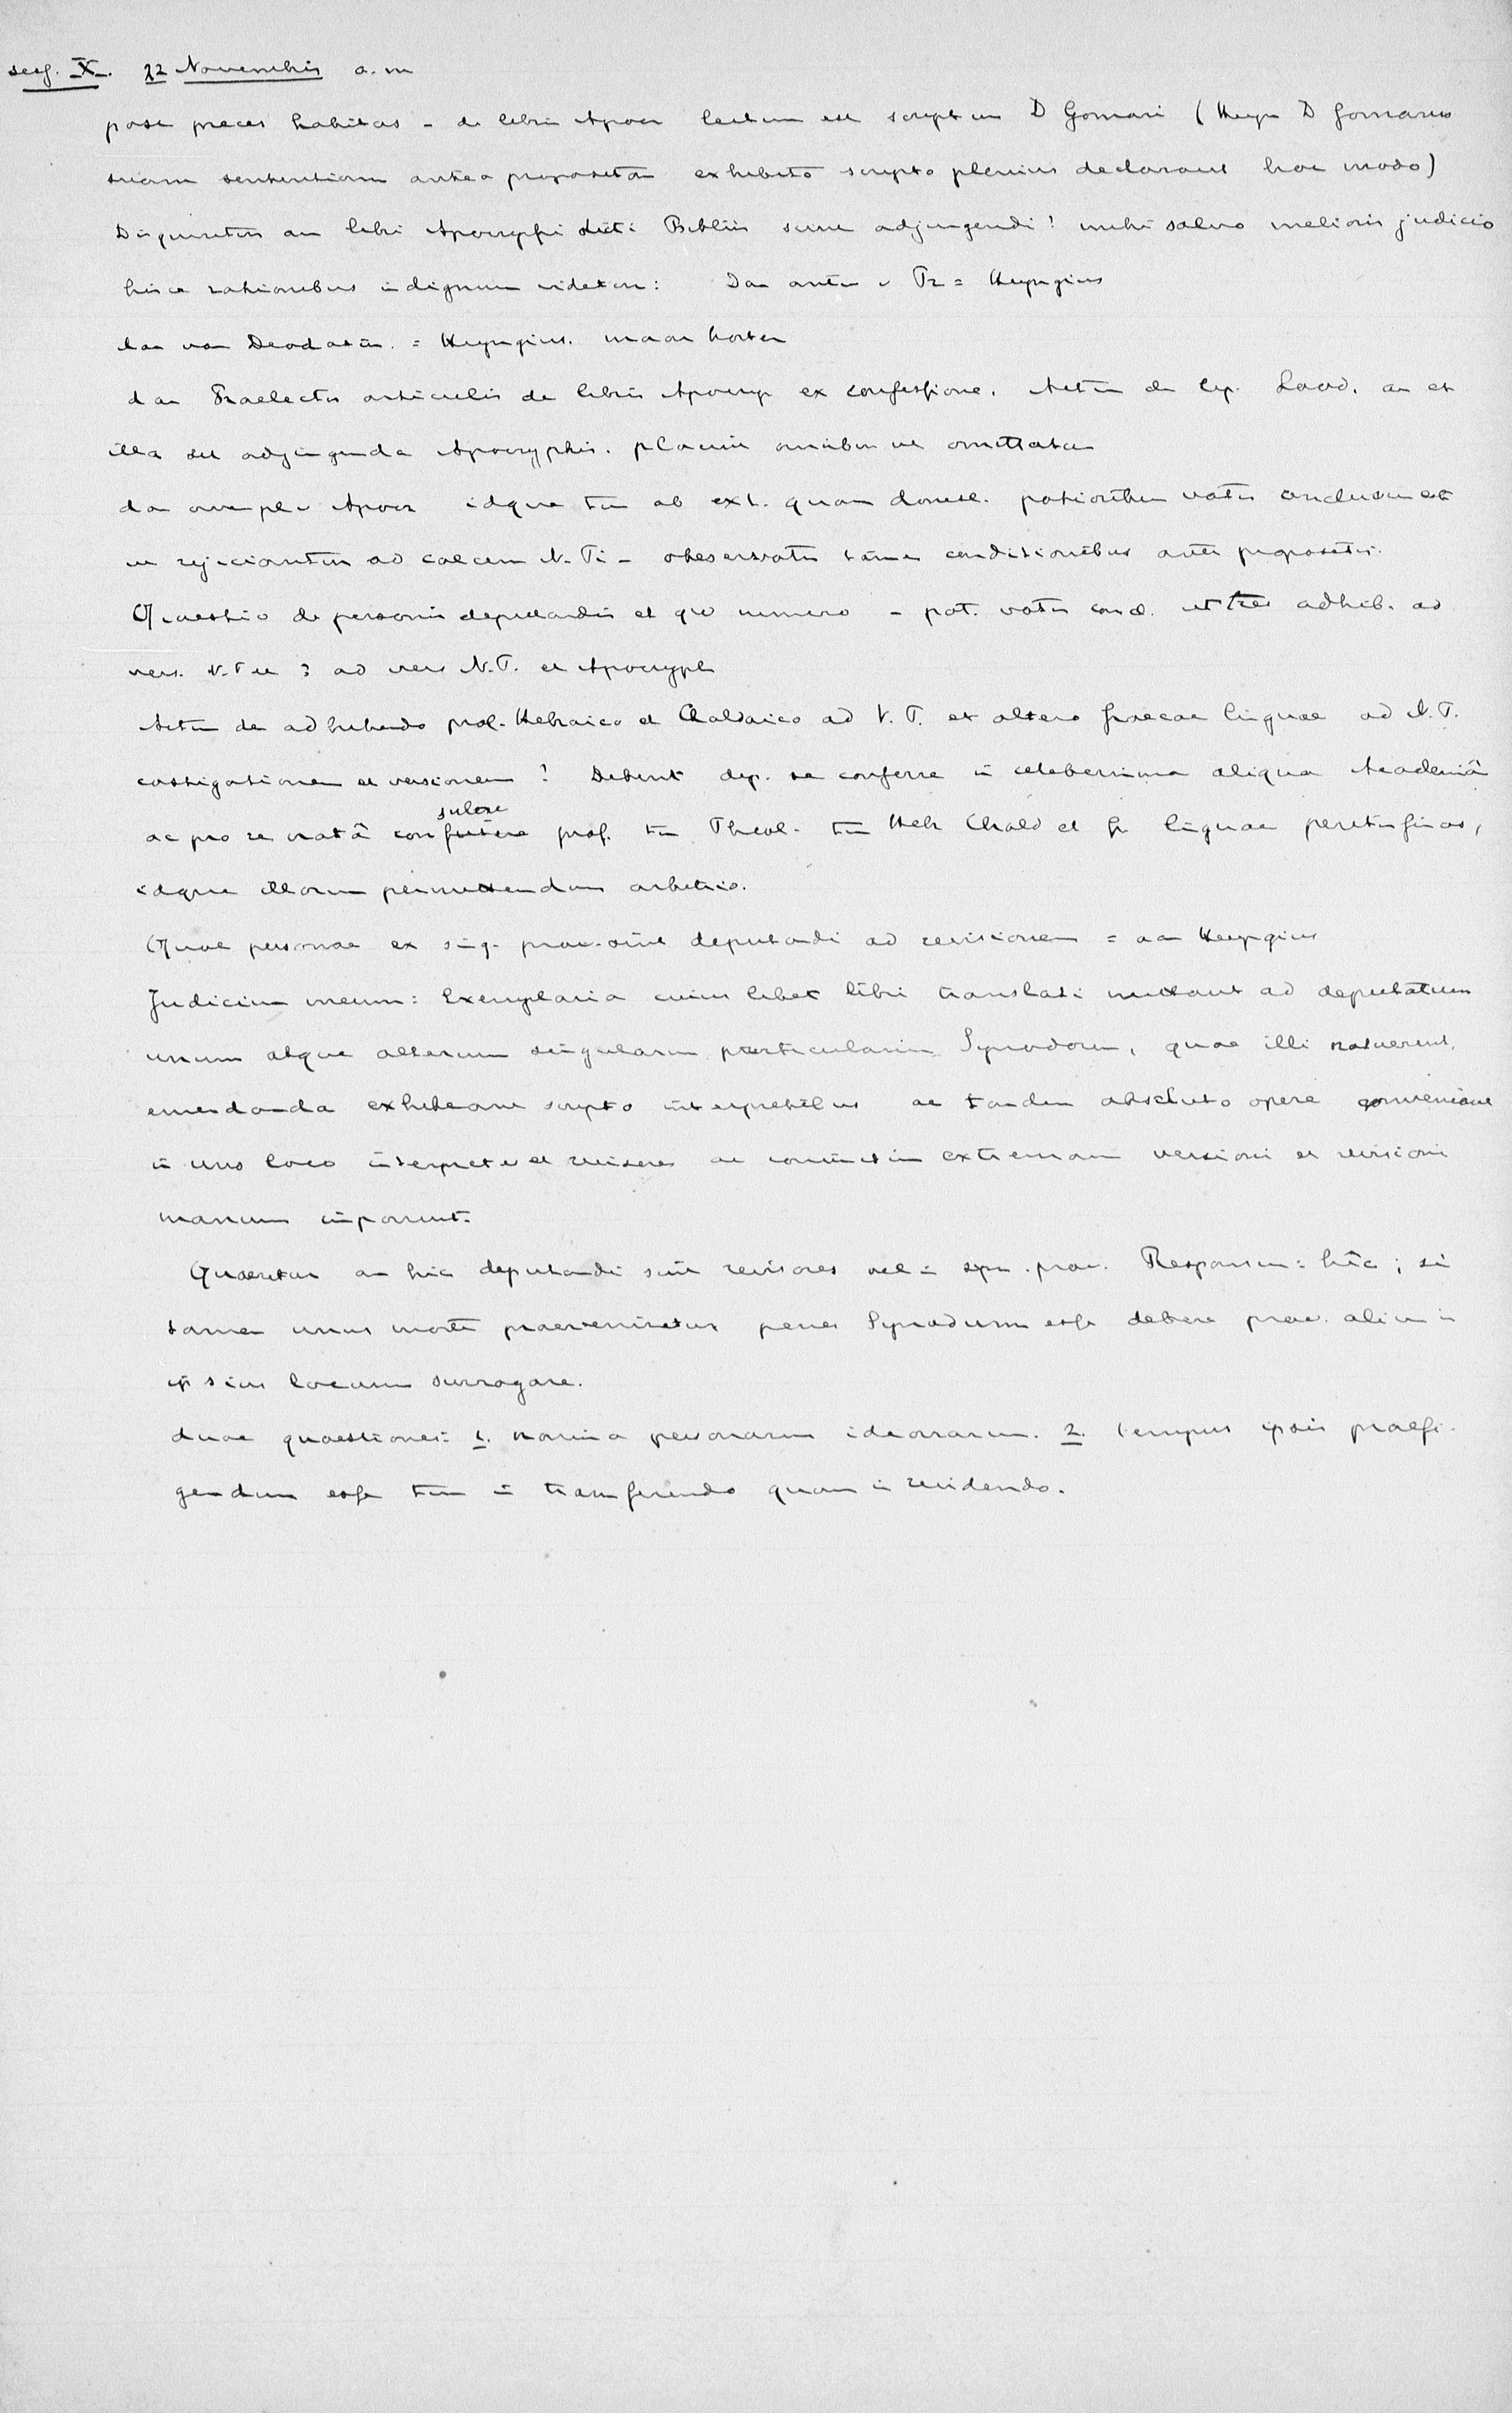 sess. X. 22 Novembris a.m
post preces habitas - de libris Apocr lectum est scriptum D Gomari (Heyn D Gomarus
suam sententiam antea propositam exhibito scripto plenius declaravit hoc modo)
Disquiritur an libri Apocryphi dicti Bibliis sint adjungendi? mihi salvo melioris judicio
hisce rationibus indignum videtur: Dan = Heyngius
dan van Deodatus = Heyngius. maar korter
dan Praelectus articulis de libris Apocryp ex confessione. Actum de Ep. Laod. an et
illa sit adjungenda Apocryphis. placuit omnibus ut omittatur
dan Apocr idque tum ab ext. quam donec. potioribus votis conclusum est
ut rejiciantur ad calcem N. Ti - observatis tamen conditionibus ante propositis.
Quaestio de personis deputandis et quo numero - pot. votis concl. ut tres adhib. ad
vers. V.T et 3 ad vers N.T. et Apocryph
Actum de adhibendo prof. Hebraico et Chaldaico ad V. T. et altero Graecae linguae ad N.T.
castigationem et versionem? Debent dep. se conferre in celeberrima aliqua Academiâ
ac pro re natâ consulere prof. tum Theol. tum Heb Chald et Gr linguae peritissimos,
idque illorum permittendum arbitrio.
Quae personae ex sing. provinciis deputandi ad revisionem = aan Heyngius
Judicium meum: Exemplaria cuius libet libri translati mittant ad deputatum
unum atque alterum singularum particularium Synodorum, quae illi notuerint
emendanda exhibeant scripto interpretibus ac tandem absoluto opere conveniant
in uno loco interpretes et revisores ac conjunctim extremam versioni et revisioni
manum imponent.
Quaeritur an hic deputandi sint revisores vel in syn. prov. Responsum: hîc; si
tamen unus morte praeveniretur penes Synodum esse debere prov. alium in
ipsius locum surrogare.
duae quaestiones: 1. nomina personarum idonearum. 2. tempus ipsis praefi-
gendum esse tum in transferendo quam in revidendo.